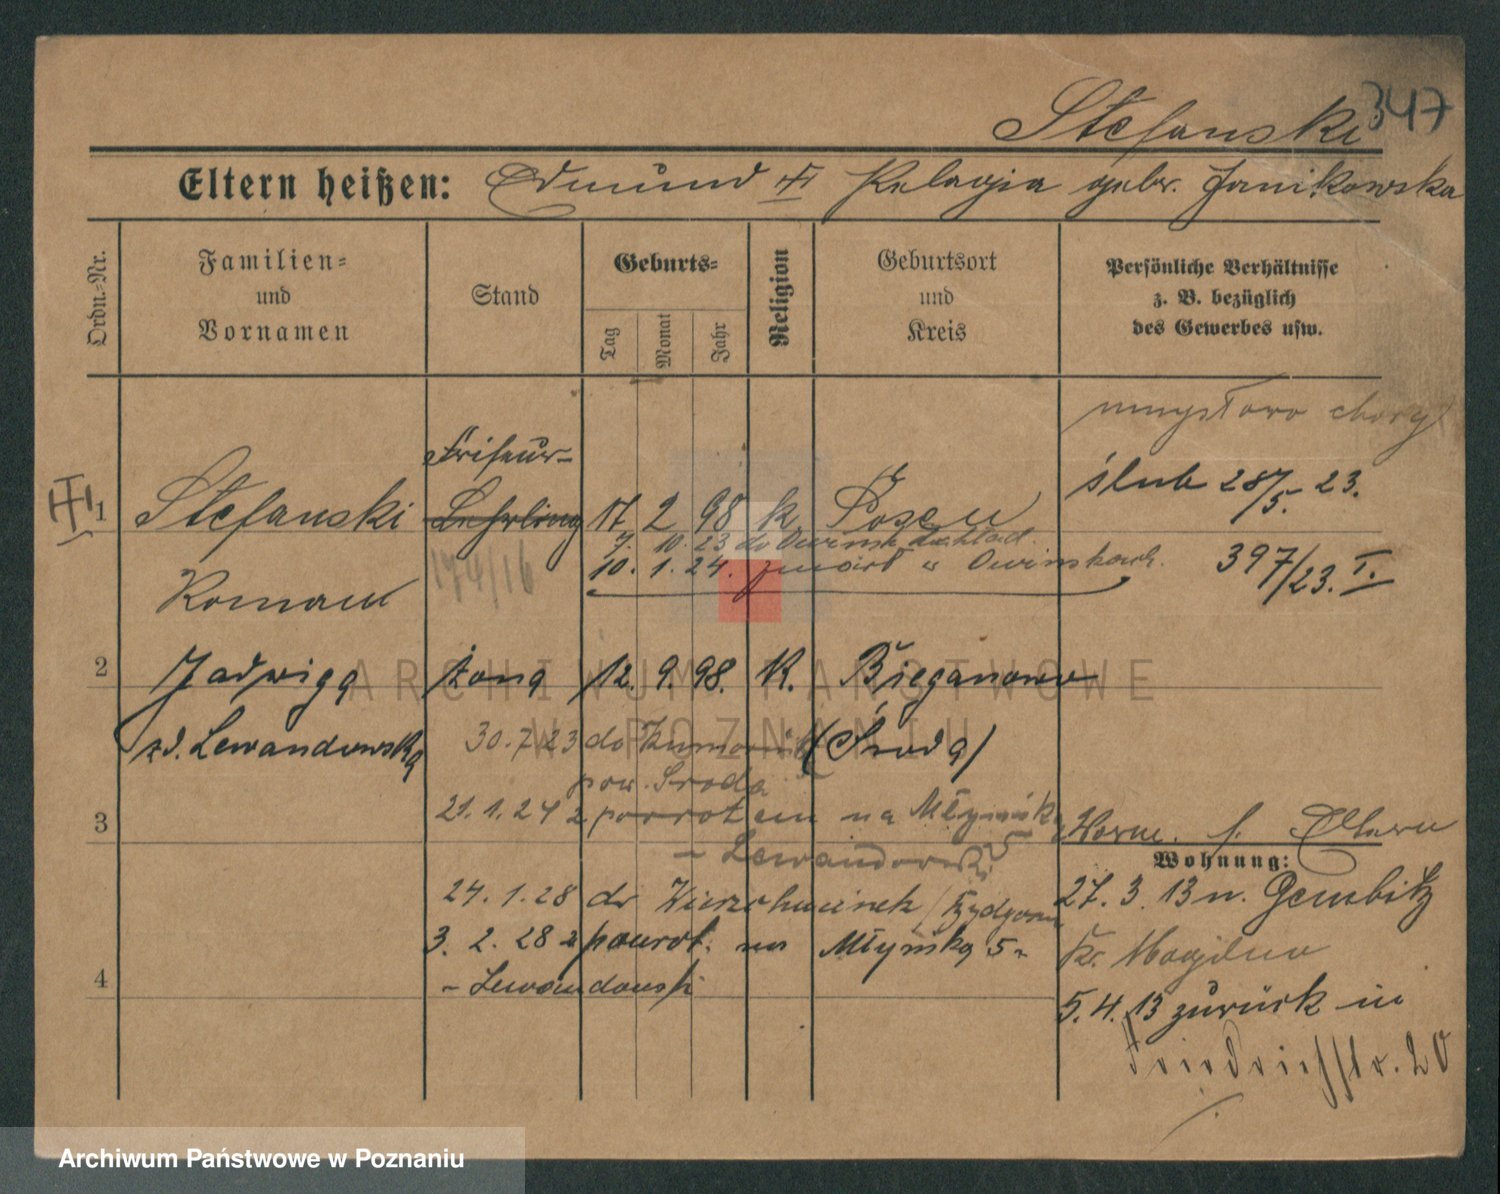 Stefanski 347
Eltern heißen: Edmund Pelagia gebr. Janikowska
Ordn.-Nr.
Familien-
und
Vornamen
Stand
Geburts-
Tag
Monat
Jahr
Religion
Geburtsort
und
Kreis
Persönliche Verhältnisse
z. B. bezüglich
des Gewerbes usw.
umysłowo chory
Friseur-
ślub 28/5. 23.
1 Stefanski Lehrling 17 2 98 k. Posen
7. 10. 23 do Owinsk Zakład.
174/16
10. 1. 24. zmarł w Owinskach.
397/23. I.
Roman
2 Jadwiga żona 12. 9. 98. K. Bieganowo
zd. Lewandowska 30.7.23 do (Środa)
pow. Sroda
3 21.1.24 z powrotem na Młyńską
5
- Lewandowski
Vorm. s. Eltern
Wohnung:
24.1.28 do /Bydgoszcz
27. 3. 13 n. Gembitz
3. 2. 28 z powrot. na Młyńską 5
Kr. Mogilno
4 - Lewandowski
5. 4. 13 zurück in
Friedrichstr. 20
ARCHIWUM PAŃSTWOWE
W POZNANIU
Archiwum Państwowe w Poznaniu